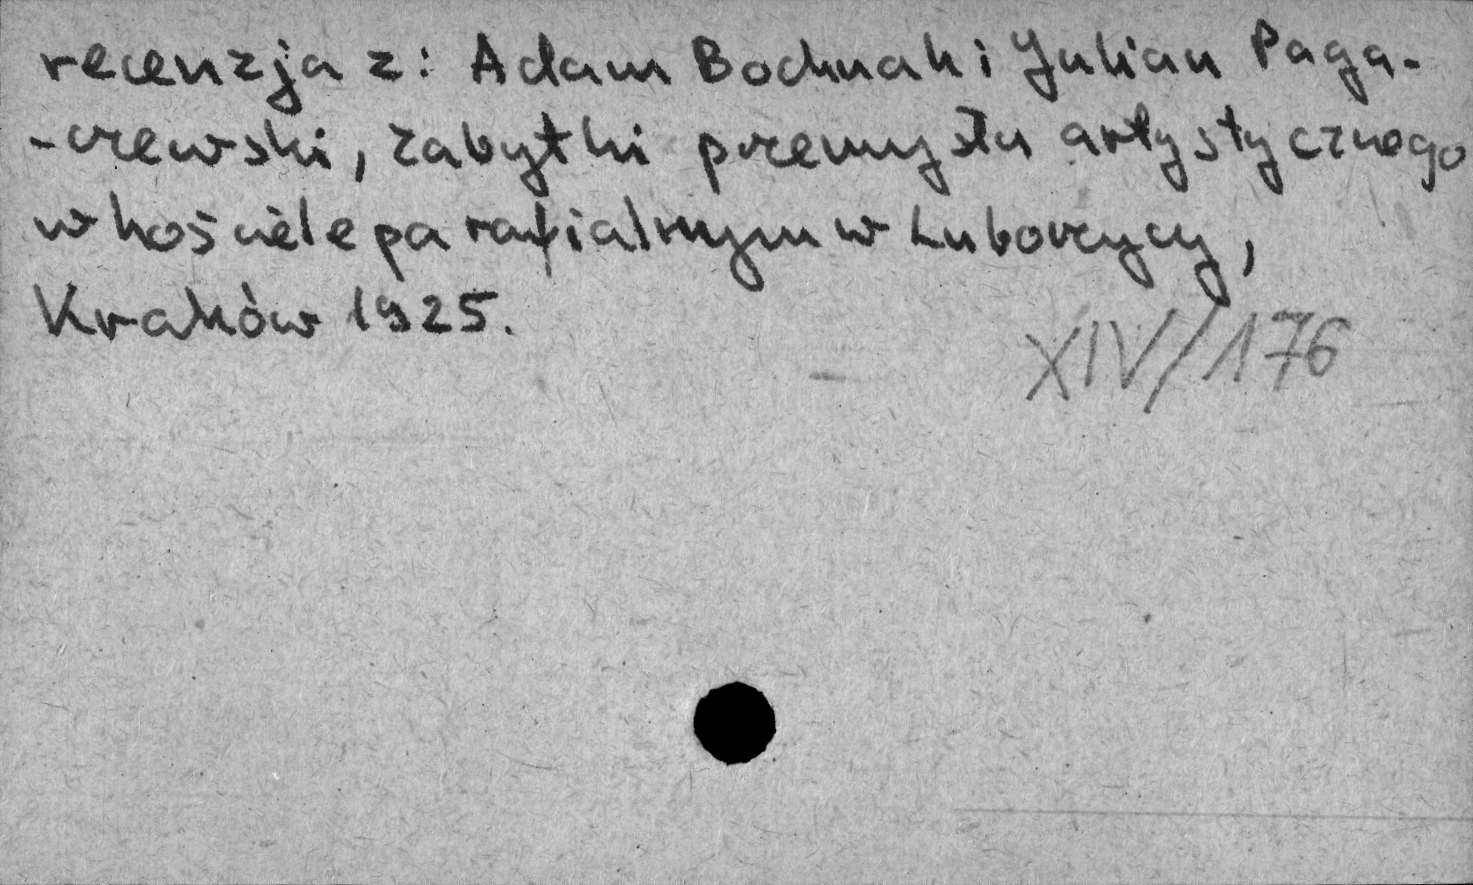 recenzja z: Adam Bochnak i Julian Paga-
-czewski, Zabytki przemysłu artystycznego
w kościele parafialnym w Luborzycy,
Kraków 1925.
XIV/176